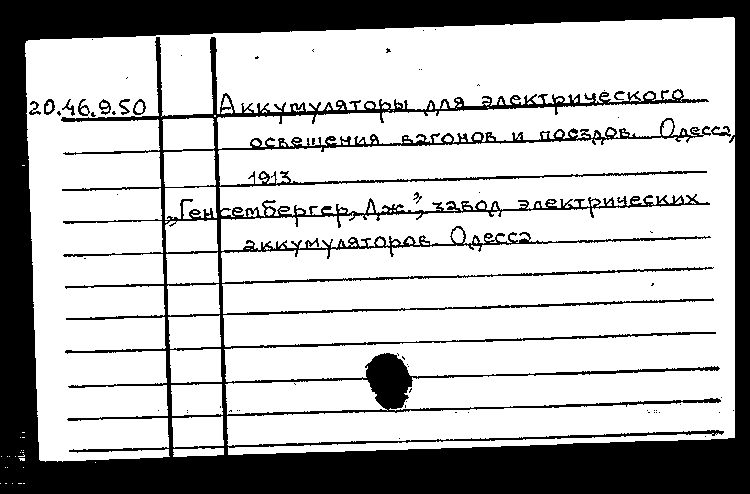 20.46.9.50 Аккумуляторы для электрического
освещения вагонов и поездов. Одесса,
1913.
„Генсембергер, Дж.”, завод электрических
аккумуляторов. Одесса.